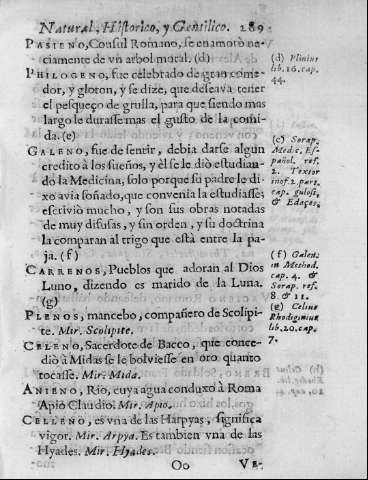 Natural, Historico, y Gentilico. 289
PASIENO, Consul Romano, se enamorò ne-
ciamente de vn arbol moral. (d)
PHILOGENO, fue celebrado de gran come-
dor, y gloton, y se dize, que deseava tener
el pesqueço de grulla, para que siendo mas
largo le durasse mas el gusto de la comi-
da. (e)
GALENO, fue de sentir, debia darse algun
credito à los sueños, y èl se le diò estudian-
do la Medicina, solo porque su padre le di-
xo avia soñado, que convenia la estudiasse;
escriviò mucho, y son sus obras notadas
de muy difusas, y sin orden, y su doctrina
la comparan al trigo que està entre la pa-
ja. (f)
CARRENOS, Pueblos que adoran al Dios
Luno, dizendo es marido de la Luna.
(g)
PLENOS, mancebo, compañero de Scolipi-
te. Mir. Scolipite.
CELENO, Sacerdote de Bacco, que conce-
diò à Midas se le bolviesse en oro quanto
tocasse. Mir. Mida.
ANIENO, Rio, cuya agua conduxò à Roma
Apio Claudio. Mir. Apio.
CELLENO, es vna de las Harpyas, significa
vigor. Mir. Arpya. Es tambien vna de las
Hyades. Mir. Hyades.
Oo VE-
(d) Plinius
lib. 16. cap.
44.
(e) Sorap.
Medic. Es-
pañol. ref.
2. Textor
inof. 2. part.
cap. gulosi,
& Edaces.
(f) Galen:
in Method.
cap. 4. &
Sorap. ref.
8. & 11.
(e) Celius
Rhodiginius
lib. 20. cap.
7.